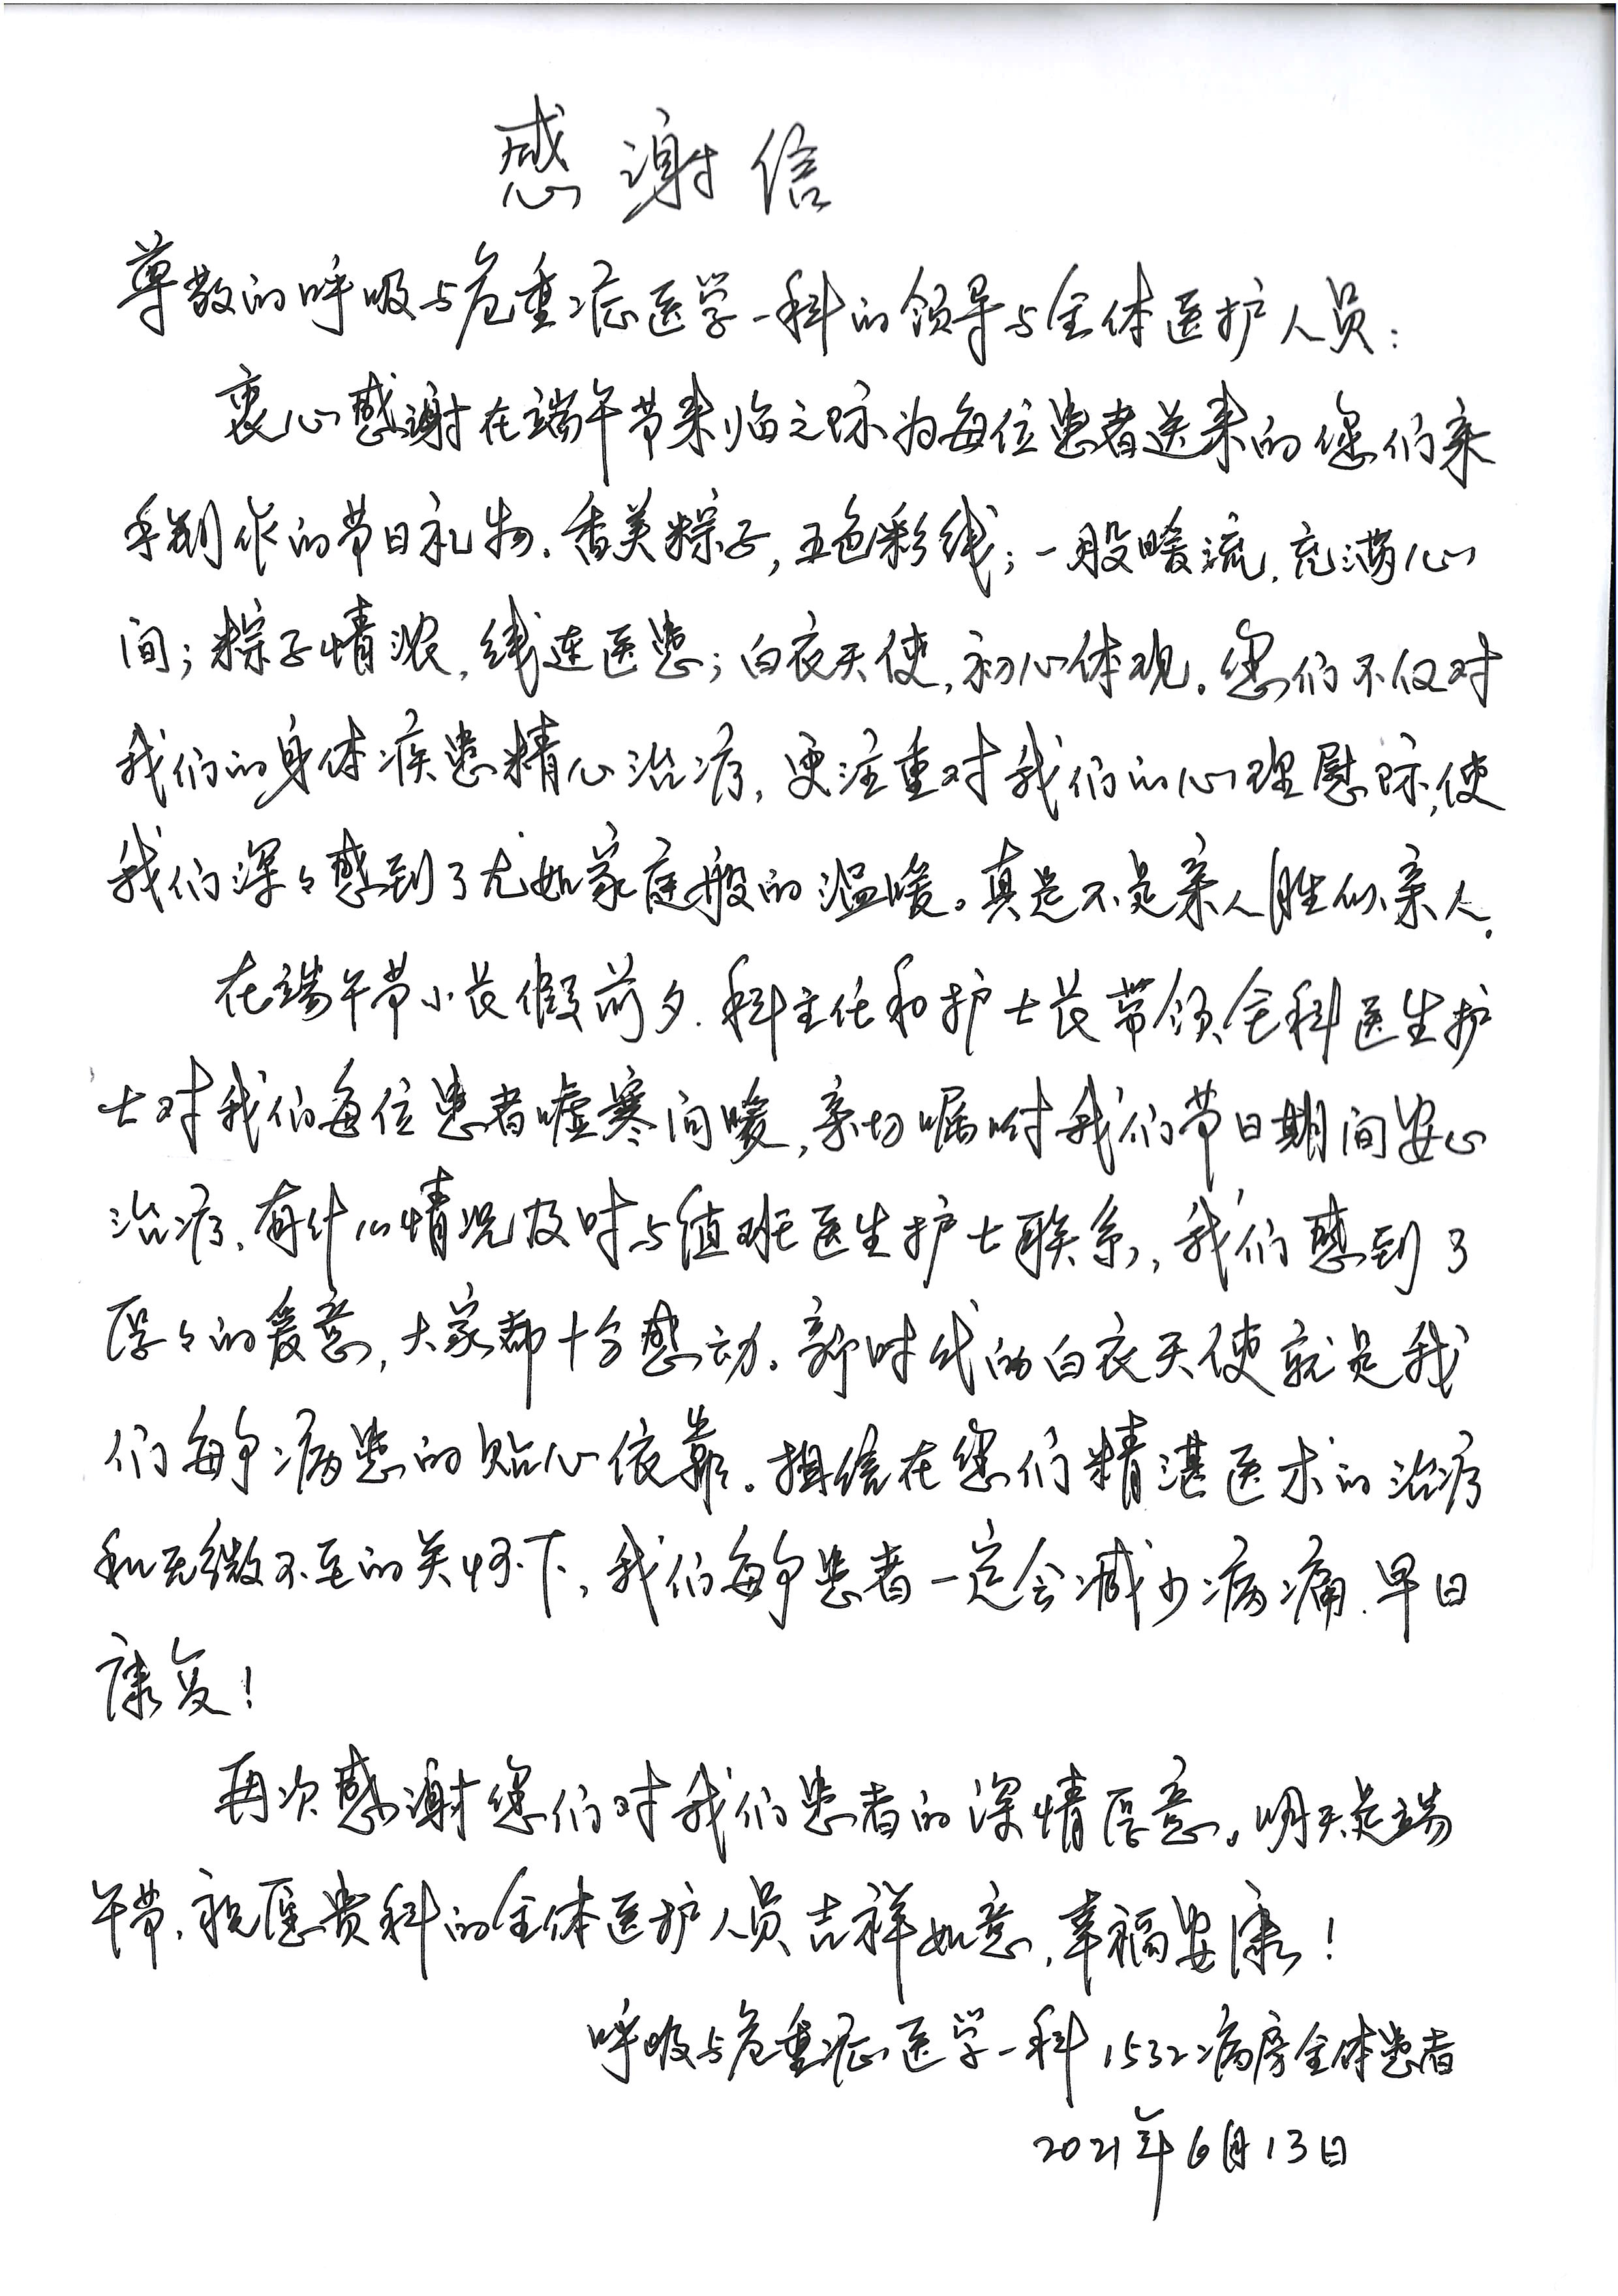 感谢信
尊敬的呼吸与危重症医学一科的领导与全体医护人员：
衷心感谢在端午节来临之际为每位患者送来的您们亲
手制作的节日礼物。香美粽子，五色彩线；一股暖流，充满心
间；粽子情浓，线连医患；白衣天使，初心体现。您们不仅对
我们的身体疾患精心治疗，更注重对我们的心理慰际，使
我们深々感到了尤如家庭般的温暖。真是不是亲人胜似亲人。
在端午节小长假前夕，科主任和护士长带领全科医生护
士对我们每位患者嘘寒问暖，亲切嘱咐我们节日期间安心
治疗，有什么情况及时与值班医生护士联系，我们感到了
厚々的爱意，大家都十分感动。新时代的白衣天使就是我
们每个病患的贴心依靠。相信在您们精湛医术的治疗
和无微不至的关怀下，我们每个患者一定会减少病痛，早日
康复！
再次感谢您们对我们患者的深情厚意。明天是端
午节，祝愿贵科的全体医护人员吉祥如意，幸福安康！
呼吸与危重症医学一科 1532病房全体患者
2021年6月13日